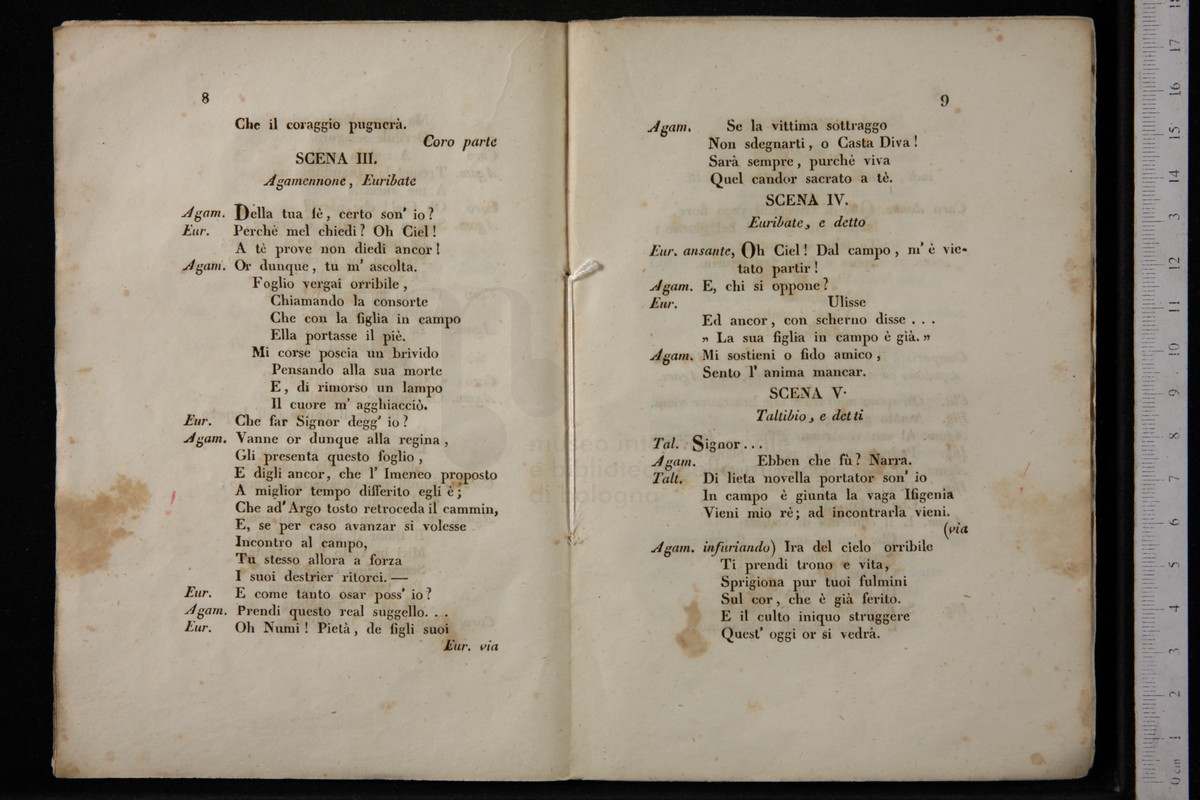 8
Che il coraggio pugnerà.
Coro parte
SCENA III.
Agamennone, Euribate
Agam. Della tua fè, certo son' io?
Eur. Perchè mel chiedi? Oh Ciel!
A tè prove non diedi ancor!
Agam. Or dunque, tu m' ascolta.
Foglio vergai orribile,
Chiamando la consorte
Che con la figlia in campo
Ella portasse il piè.
Mi corse poscia un brivido
Pensando alla sua morte
E, di rimorso un lampo
Il cuore m' agghiacciò.
Eur. Che far Signor degg' io?
Agam. Vanne or dunque alla regina,
Gli presenta questo foglio,
E digli ancor, che l' Imeneo proposto
A miglior tempo differito egli è;
Che ad' Argo tosto retroceda il cammin,
E, se per caso avanzar si volesse
Incontro al campo,
Tu stesso allora a forza
I suoi destrier ritorci. —
Eur. E come tanto osar poss' io?
Agam. Prendi questo real suggello. . .
Eur. Oh Numi! Pietà, de figli suoi
Eur. via
9
Agam. Se la vittima sottraggo
Non sdegnarti, o Casta Diva!
Sarà sempre, purchè viva
Quel candor sacrato a tè.
SCENA IV.
Euribate, e detto
Eur. ansante, Oh Ciel! Dal campo, m' è vie-
tato partir!
Agam. E, chi si oppone?
Eur. Ulisse
Ed ancor, con scherno disse . . .
„ La sua figlia in campo è già. „
Agam. Mi sostieni o fido amico,
Sento l' anima mancar.
SCENA V.
Taltibio, e detti
Tal. Signor...
Agam. Ebben che fù? Narra.
Talt. Di lieta novella portator son' io
In campo è giunta la vaga Ifigenia
Vieni mio rè; ad incontrarla vieni.
(via
Agam. infuriando) Ira del cielo orribile
Ti prendi trono e vita,
Sprigiona pur tuoi fulmini
Sul cor, che è già ferito.
E il culto iniquo struggere
Quest' oggi or si vedrà.
museo
e biblioteca
di bologna
0 cm 1 2 3 4 5 6 7 8 9 10 11 12 13 14 15 16 17